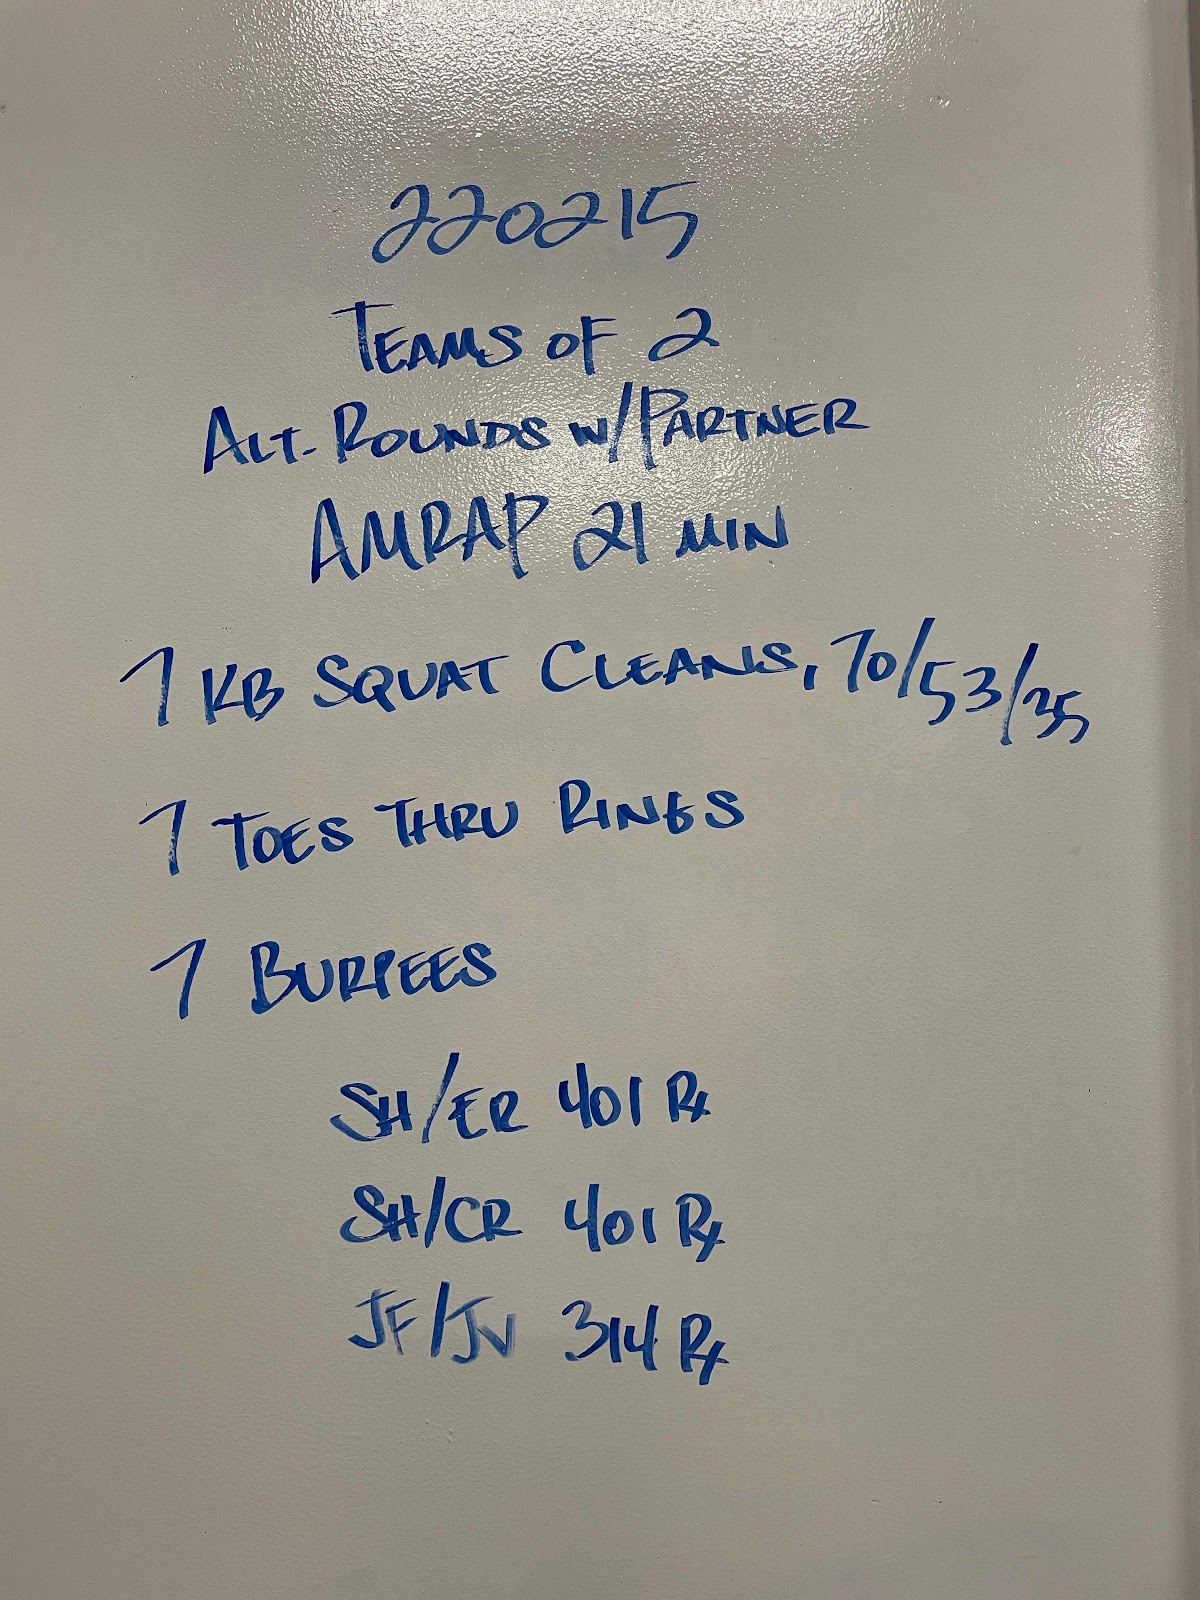 220215
TEAMS OF 2
ALT. ROUNDS W/PARTNER
AMRAP 21 MIN
7 KB SQUAT CLEANS, 70/53/35
7 TOES THRU RINGS
7 BURPEES
SH/ER 401 Rx
SH/CR 401 Rx
JF/JV 314 Rx